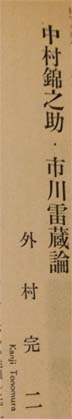 中村錦之助・市川雷蔵論
外村完二
Kanji Tonomura